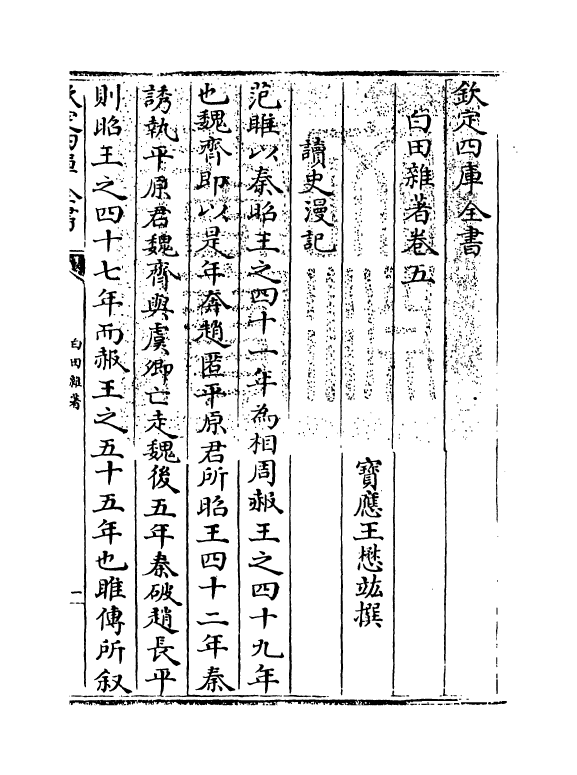 欽定四庫全書
白田雜著卷五
寶應王懋竑撰
讀史漫記
范睢以秦昭王之四十一年為相周赧王之四十九年
也魏齊即以是年奔趙匿平原君所昭王四十二年秦
誘執平原君魏齊與虞卿亡走魏後五年秦破趙長平
則昭王之四十七年而赧王之五十五年也睢傳所叙
欽定四庫全書
白田雜著
一